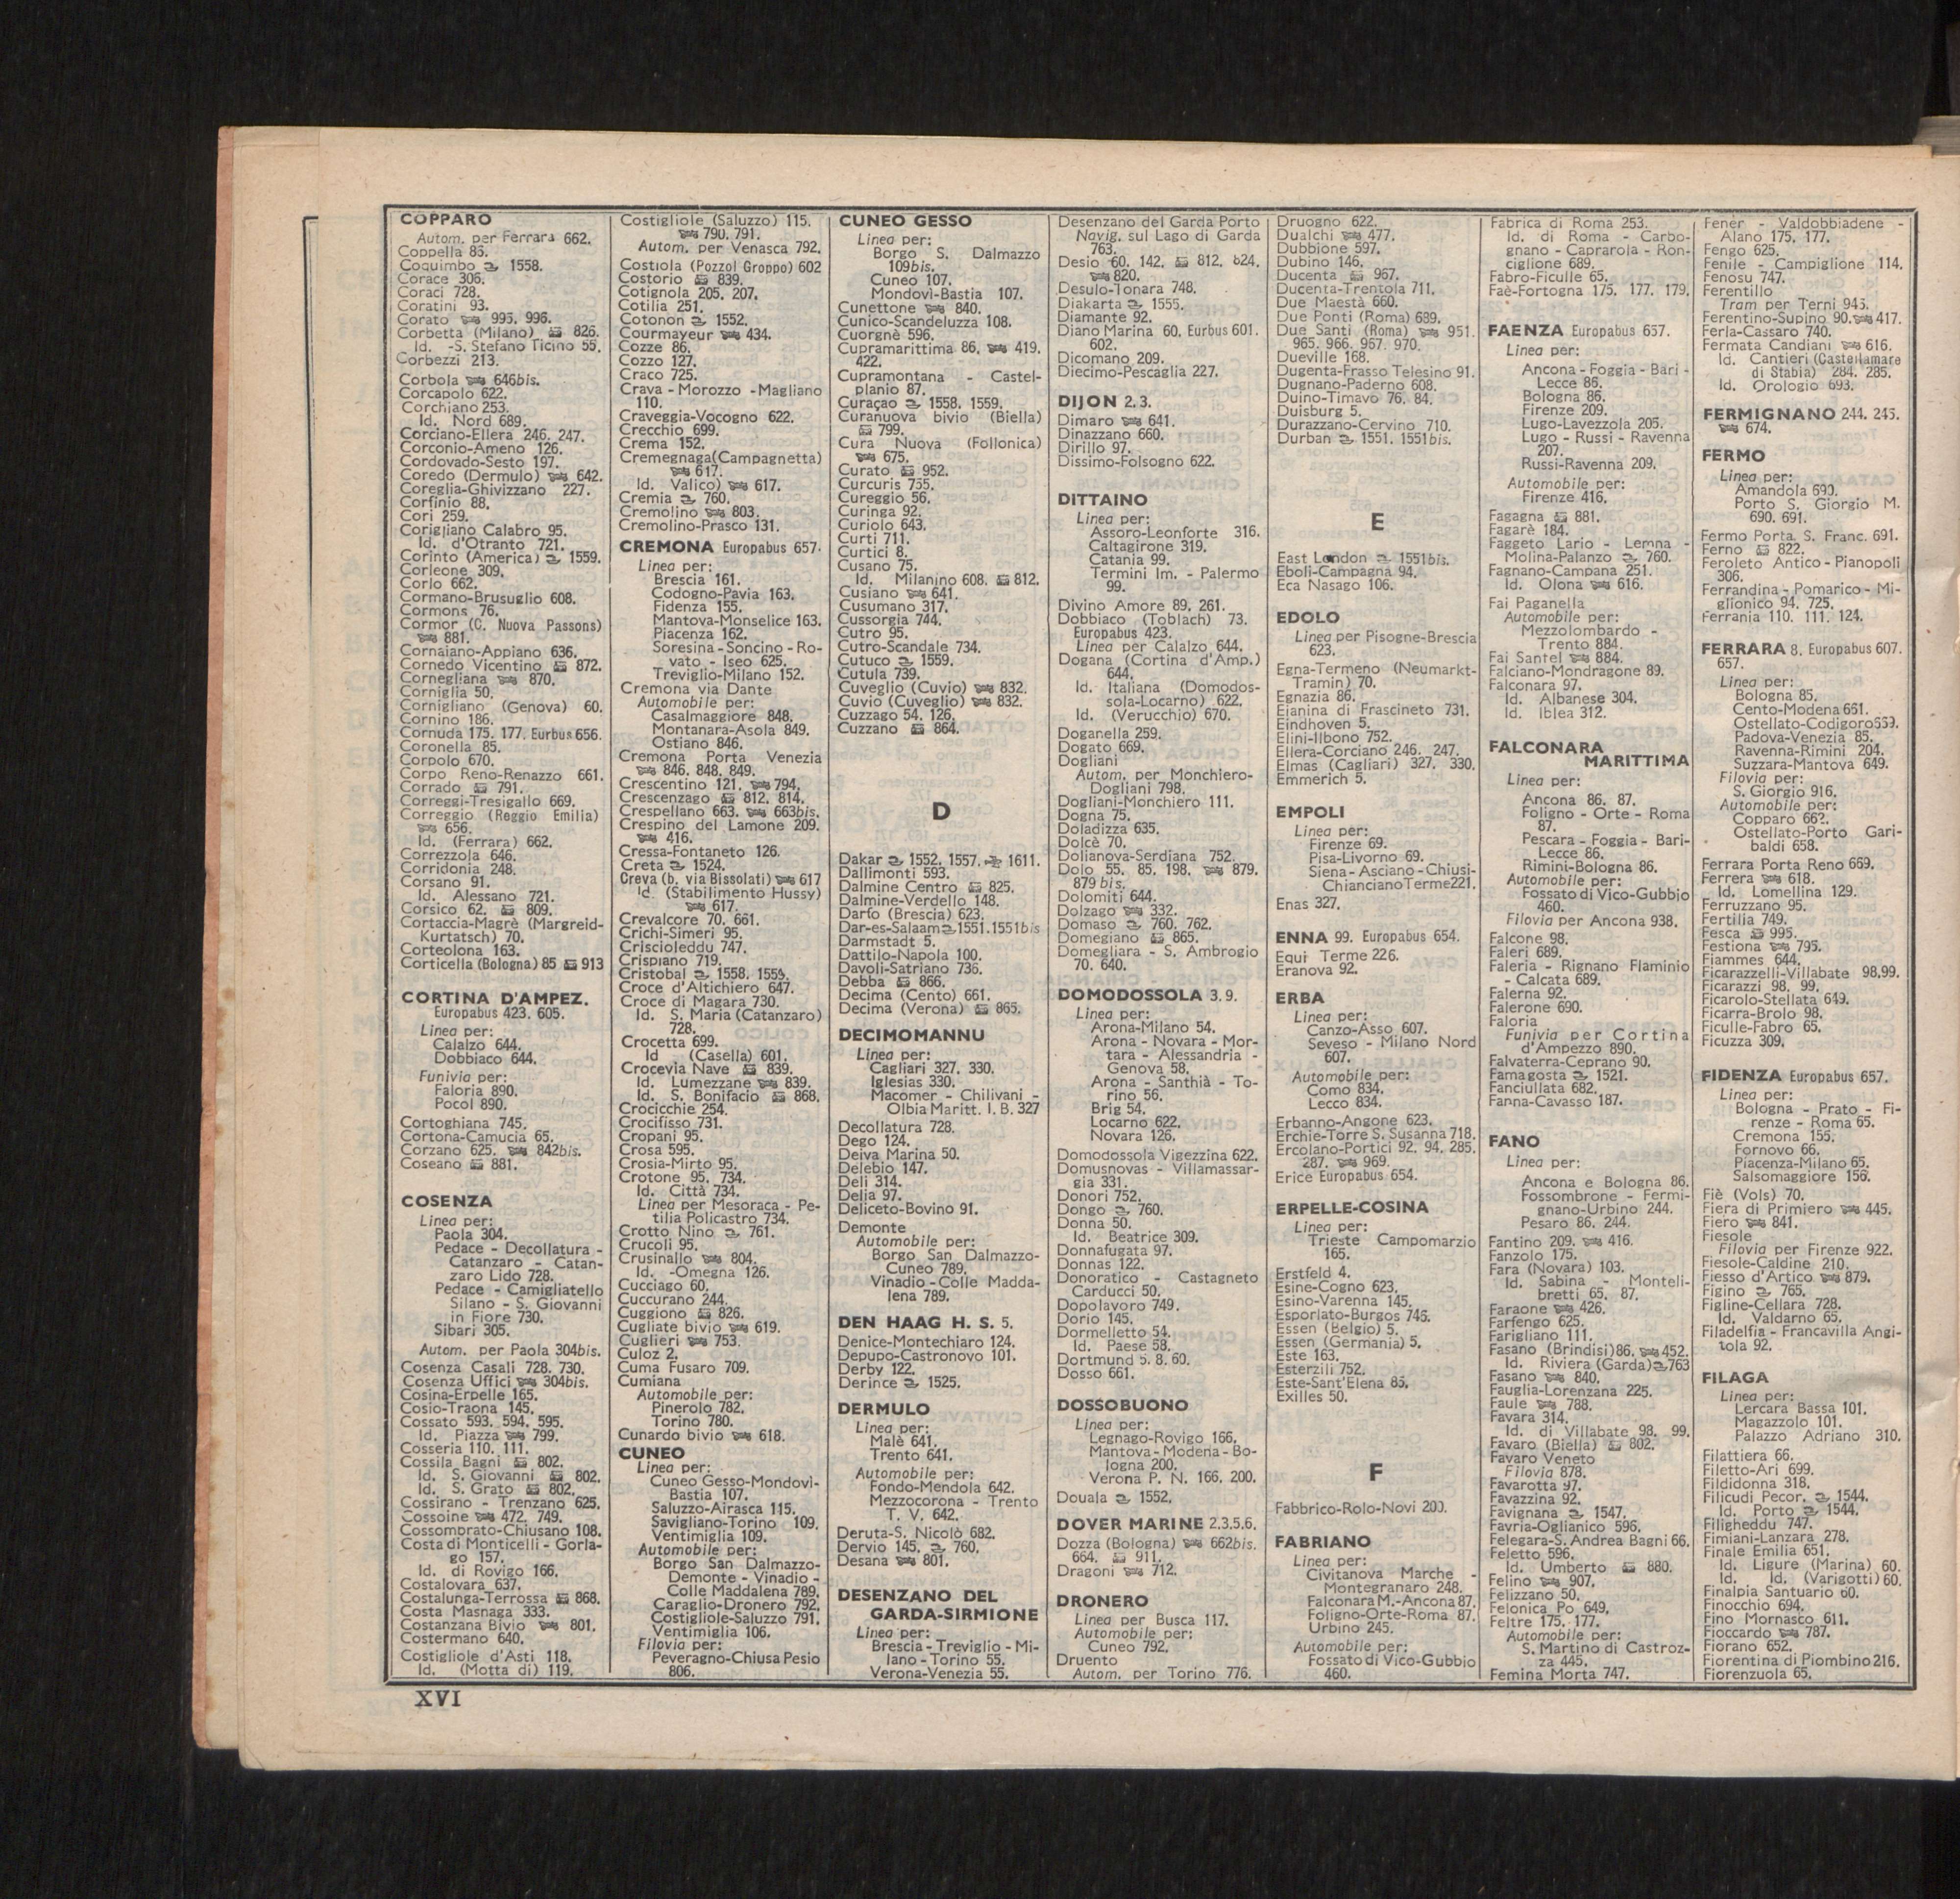 COPPARO
Autom. per Ferrara 662.
Coppella 85.
Coquimbo 1558.
Corace 306.
Coraci 728.
Coratini 93.
Corato 995. 996.
Corbetta (Milano) 826.
Id. -S. Stefano Ticino 55.
Corbezzi 213.
Corbola 646bis.
Corcapolo 622.
Corchiano 253.
Id. Nord 689.
Corciano-Ellera 246. 247.
Corconio-Ameno 126.
Cordovado-Sesto 197.
Coredo (Dermulo) 642.
Coreglia-Ghivizzano 227.
Corfinio 88.
Cori 259.
Corigliano Calabro 95.
Id. d'Otranto 721.
Corinto (America) 1559.
Corleone 309.
Corlo 662.
Cormano-Brusuglio 608.
Cormons 76.
Cormor (C. Nuova Passons)
881.
Cornaiano-Appiano 636.
Cornedo Vicentino 872.
Cornegliana 870.
Corniglia 50.
Cornigliano (Genova) 60.
Cornino 186.
Cornuda 175. 177. Eurbus 656.
Coronella 85.
Corpolo 670.
Corpo Reno-Renazzo 661.
Corrado 791.
Correggi-Tresigallo 669.
Correggio (Reggio Emilia)
656.
Id. (Ferrara) 662.
Correzzola 646.
Corridonia 248.
Corsano 91.
Id. Alessano 721.
Corsico 62. 809.
Cortaccia-Magrè (Margreid-
Kurtatsch) 70.
Corteolona 163.
Corticella (Bologna) 85 913
CORTINA D'AMPEZ.
Europabus 423. 605.
Linea per:
Calalzo 644.
Dobbiaco 644.
Funivia per:
Faloria 890.
Pocol 890.
Cortoghiana 745.
Cortona-Camucia 65.
Corzano 625. 842bis.
Coseano 881.
COSENZA
Linea per:
Paola 304.
Pedace - Decollatura -
Catanzaro - Catan-
zaro Lido 728.
Pedace - Camigliatello
Silano - S. Giovanni
in Fiore 730.
Sibari 305.
Autom. per Paola 304bis.
Cosenza Casali 728. 730.
Cosenza Uffici 304bis.
Cosina-Erpelle 165.
Cosio-Traona 145.
Cossato 593. 594. 595.
Id. Piazza 799.
Cosseria 110. 111.
Cossila Bagni 802.
Id. S. Giovanni 802.
Id. S. Grato 802.
Cossirano - Trenzano 625.
Cossoine 472. 749.
Cossombrato-Chiusano 108.
Costa di Monticelli - Gorla-
go 157.
Id. di Rovigo 166.
Costalovara 637.
Costalunga-Terrossa 868.
Costa Masnaga 333.
Costanzana Bivio 801.
Costermano 640.
Costigliole d'Asti 118.
Id. (Motta di) 119.
Costigliole (Saluzzo) 115.
790. 791.
Autom. per Venasca 792.
Costiola (Pozzol Groppo) 602
Costorio 839.
Cotignola 205. 207.
Cotilia 251.
Cotonon 1552.
Courmayeur 434.
Cozze 86.
Cozzo 127.
Craco 725.
Crava - Morozzo - Magliano
110.
Craveggia-Vocogno 622.
Crecchio 699.
Crema 152.
Cremegnaga (Campagnetta)
617.
Id. Valico) 617.
Cremia 760.
Cremolino 803.
Cremolino-Prasco 131.
CREMONA Europabus 657.
Linea per:
Brescia 161.
Codogno-Pavia 163.
Fidenza 155.
Mantova-Monselice 163.
Piacenza 162.
Soresina - Soncino - Ro-
vato - Iseo 625.
Treviglio-Milano 152.
Cremona via Dante
Automobile per:
Casalmaggiore 848.
Montanara-Asola 849.
Ostiano 846.
Cremona Porta Venezia
846. 848. 849.
Crescentino 121. 794.
Crescenzago 812. 814.
Crespellano 663. 663bis.
Crespino del Lamone 209.
416.
Cressa-Fontaneto 126.
Creta 1524.
Creva (b. via Bissolati) 617
Id. (Stabilimento Hussy)
617.
Crevalcore 70. 661.
Crichi-Simeri 95.
Criscioleddu 747.
Crispiano 719.
Cristobal 1558. 1559.
Croce d'Altichiero 647.
Croce di Magara 730.
Id. S. Maria (Catanzaro)
728.
Crocetta 699.
Id (Casella) 601.
Crocevia Nave 839.
Id. Lumezzane 839.
Id. S. Bonifacio 868.
Crocicchie 254.
Crocifisso 731.
Cropani 95.
Crosa 595.
Crosia-Mirto 95.
Crotone 95. 734.
Id. Città 734.
Linea per Mesoraca - Pe-
tilia Policastro 734.
Crotto Nino 761.
Crucoli 95.
Crusinallo 804.
Id. -Omegna 126.
Cucciago 60.
Cuccurano 244.
Cuggiono 826.
Cugliate bivio 619.
Cuglieri 753.
Culoz 2.
Cuma Fusaro 709.
Cumiana
Automobile per:
Pinerolo 782.
Torino 780.
Cunardo bivio 618.
CUNEO
Linea per:
Cuneo Gesso-Mondovì-
Bastia 107.
Saluzzo-Airasca 115.
Savigliano-Torino 109.
Ventimiglia 109.
Automobile per:
Borgo San Dalmazzo-
Demonte - Vinadio -
Colle Maddalena 789.
Caraglio-Dronero 792.
Costigliole-Saluzzo 791.
Ventimiglia 106.
Filovia per:
Peveragno-Chiusa Pesio
806.
CUNEO GESSO
Linea per:
Borgo S. Dalmazzo
109bis.
Cuneo 107.
Mondovì-Bastia 107.
Cunettone 840.
Cunico-Scandeluzza 108.
Cuorgnè 596.
Cupramarittima 86. 419.
422.
Cupramontana - Castel-
planio 87.
Curaçao 1558. 1559.
Curanuova bivio (Biella)
799.
Cura Nuova (Follonica)
675.
Curato 952.
Curcuris 755.
Cureggio 56.
Curinga 92.
Curiolo 643.
Curti 711.
Curtici 8.
Cusano 75.
Id. Milanino 608. 812.
Cusiano 641.
Cusumano 317.
Cussorgia 744.
Cutro 95.
Cutro-Scandale 734.
Cutuco 1559.
Cutula 739.
Cuveglio (Cuvio) 832.
Cuvio (Cuveglio) 832.
Cuzzago 54. 126.
Cuzzano 864.
D
Dakar 1552. 1557. 1611.
Dallimonti 593.
Dalmine Centro 825.
Dalmine-Verdello 148.
Darfo (Brescia) 623.
Dar-es-Salaam 1551. 1551bis
Darmstadt 5.
Dattilo-Napola 100.
Davoli-Satriano 736.
Debba 866.
Decima (Cento) 661.
Decima (Verona) 865.
DECIMOMANNU
Linea per:
Cagliari 327. 330.
Iglesias 330.
Macomer - Chilivani -
Olbia Maritt. I. B. 327
Decollatura 728.
Dego 124.
Deiva Marina 50.
Delebio 147.
Deli 314.
Delia 97.
Deliceto-Bovino 91.
Demonte
Automobile per:
Borgo San Dalmazzo-
Cuneo 789.
Vinadio - Colle Madda-
lena 789.
DEN HAAG H. S. 5.
Denice-Montechiaro 124.
Depupo-Castronovo 101.
Derby 122.
Derince 1525.
DERMULO
Linea per:
Malè 641.
Trento 641.
Automobile per:
Fondo-Mendola 642.
Mezzocorona - Trento
T. V. 642.
Deruta-S. Nicolò 682.
Dervio 145. 760.
Desana 801.
DESENZANO DEL
GARDA-SIRMIONE
Linea per:
Brescia - Treviglio - Mi-
lano - Torino 55.
Verona-Venezia 55.
Desenzano del Garda Porto
Navig. sul Lago di Garda
763.
Desio 60. 142. 812. 824.
820.
Desulo-Tonara 748.
Diakarta 1555.
Diamante 92.
Diano Marina 60. Eurbus 601.
602.
Dicomano 209.
Diecimo-Pescaglia 227.
DIJON 2. 3.
Dimaro 641.
Dinazzano 660.
Dirillo 97.
Dissimo-Folsogno 622.
DITTAINO
Linea per:
Assoro-Leonforte 316.
Caltagirone 319.
Catania 99.
Termini Im. - Palermo
99.
Divino Amore 89. 261.
Dobbiaco (Toblach) 73.
Europabus 423.
Linea per Calalzo 644.
Dogana (Cortina d'Amp.)
644.
Id. Italiana (Domodos-
sola-Locarno) 622.
Id. (Verucchio) 670.
Doganella 259.
Dogato 669.
Dogliani
Autom. per Monchiero-
Dogliani 798.
Dogliani-Monchiero 111.
Dogna 75.
Doladizza 635.
Dolcè 70.
Dolianova-Serdiana 752.
Dolo 55. 85. 198. 879.
879 bis.
Dolomiti 644.
Dolzago 332.
Domaso 760. 762.
Domegiano 865.
Domegliara - S. Ambrogio
70. 640.
DOMODOSSOLA 3. 9.
Linea per:
Arona-Milano 54.
Arona - Novara - Mor-
tara - Alessandria -
Genova 58.
Arona - Santhià - To-
rino 56.
Brig 54.
Locarno 622.
Novara 126.
Domodossola Vigezzina 622.
Domusnovas - Villamassar-
gia 331.
Donori 752.
Dongo 760.
Donna 50.
Id. Beatrice 309.
Donnafugata 97.
Donnas 122.
Donoratico - Castagneto
Carducci 50.
Dopolavoro 749.
Dorio 145.
Dormelletto 54.
Id. Paese 58.
Dortmund 5. 8. 60.
Dosso 661.
DOSSOBUONO
Linea per:
Legnago-Rovigo 166.
Mantova - Modena - Bo-
logna 200.
Verona P. N. 166. 200.
Douala 1552.
DOVER MARINE 2.3.5.6.
Dozza (Bologna) 662bis.
664. 911.
Dragoni 712.
DRONERO
Linea per Busca 117.
Automobile per:
Cuneo 792.
Druento
Autom. per Torino 776.
Druogno 622.
Dualchi 477.
Dubbione 597.
Dubino 146.
Ducenta 967.
Ducenta-Trentola 711.
Due Maestà 660.
Due Ponti (Roma) 689.
Due Santi (Roma) 951.
965. 966. 967. 970.
Dueville 168.
Dugenta-Frasso Telesino 91.
Dugnano-Paderno 608.
Duino-Timavo 76. 84.
Duisburg 5.
Durazzano-Cervino 710.
Durban 1551. 1551bis.
E
East London 1551bis.
Eboli-Campagna 94.
Eca Nasago 106.
EDOLO
Linea per Pisogne-Brescia
623.
Egna-Termeno (Neumarkt-
Tramin) 70.
Egnazia 86.
Eianina di Frascineto 731.
Eindhoven 5.
Elini-Ilbono 752.
Ellera-Corciano 246. 247.
Elmas (Cagliari) 327. 330.
Emmerich 5.
EMPOLI
Linea per:
Firenze 69.
Pisa-Livorno 69.
Siena - Asciano - Chiusi-
Chianciano Terme 221.
Enas 327.
ENNA 99. Europabus 654.
Equi Terme 226.
Eranova 92.
ERBA
Linea per:
Canzo-Asso 607.
Seveso - Milano Nord
607.
Automobile per:
Como 834.
Lecco 834.
Erbanno-Angone 623.
Erchie-Torre S. Susanna 718.
Ercolano-Portici 92. 94. 285.
287. 969.
Erice Europabus 654.
ERPELLE-COSINA
Linea per:
Trieste Campomarzio
165.
Erstfeld 4.
Esine-Cogno 623.
Esino-Varenna 145.
Esporlato-Burgos 746.
Essen (Belgio) 5.
Essen (Germania) 5.
Este 163.
Esterzili 752.
Este-Sant'Elena 85.
Exilles 50.
F
Fabbrico-Rolo-Novi 200.
FABRIANO
Linea per:
Civitanova Marche -
Montegranaro 248.
Falconara M.-Ancona 87.
Foligno-Orte-Roma 87.
Urbino 245.
Automobile per:
Fossato di Vico-Gubbio
460.
Fabrica di Roma 253.
Id. di Roma - Carbo-
gnano - Caprarola - Ron-
ciglione 689.
Fabro-Ficulle 65.
Faè-Fortogna 175. 177. 179.
FAENZA Europabus 657.
Linea per:
Ancona - Foggia - Bari -
Lecce 86.
Bologna 86.
Firenze 209.
Lugo-Lavezzola 205.
Lugo - Russi - Ravenna
207.
Russi-Ravenna 209.
Automobile per:
Firenze 416.
Fagagna 881.
Fagarè 184.
Faggeto Lario - Lemna -
Molina-Palanzo 760.
Fagnano-Campana 251.
Id. Olona 616.
Fai Paganella
Automobile per:
Mezzolombardo -
Trento 884.
Fai Santel 884.
Falciano-Mondragone 89.
Falconara 97.
Id. Albanese 304.
Id. Iblea 312.
FALCONARA
MARITTIMA
Linea per:
Ancona 86. 87.
Foligno - Orte - Roma
87.
Pescara - Foggia - Bari-
Lecce 86.
Rimini-Bologna 86.
Automobile per:
Fossato di Vico-Gubbio
460.
Filovia per Ancona 938.
Falcone 98.
Faleri 689.
Faleria - Rignano Flaminio
- Calcata 689.
Falerna 92.
Falerone 690.
Faloria
Funivia per Cortina
d'Ampezzo 890.
Falvaterra-Ceprano 90.
Famagosta 1521.
Fanciullata 682.
Fanna-Cavasso 187.
FANO
Linea per:
Ancona e Bologna 86.
Fossombrone - Fermi-
gnano-Urbino 244.
Pesaro 86. 244.
Fantino 209. 416.
Fanzolo 175.
Fara (Novara) 103.
Id. Sabina - Monteli-
bretti 65. 87.
Faraone 426.
Farfengo 625.
Farigliano 111.
Fasano (Brindisi) 86. 452.
Id. Riviera (Garda) 763
Fasano 840.
Fauglia-Lorenzana 225.
Faule 788.
Favara 314.
Id. di Villabate 98. 99.
Favaro (Biella) 802.
Favaro Veneto
Filovia 878.
Favarotta 97.
Favazzina 92.
Favignana 1547.
Favria-Oglianico 596.
Felegara-S. Andrea Bagni 66.
Feletto 596.
Id. Umberto 880.
Felino 907.
Felizzano 50.
Felonica Po 649.
Feltre 175. 177.
Automobile per:
S. Martino di Castroz-
za 445.
Femina Morta 747.
Fener - Valdobbiadene -
Alano 175. 177.
Fengo 625.
Fenile - Campiglione 114.
Fenosu 747.
Ferentillo
Tram per Terni 945.
Ferentino-Supino 90. 417.
Ferla-Cassaro 740.
Fermata Candiani 616.
Id. Cantieri (Castellamare
di Stabia) 284. 285.
Id. Orologio 693.
FERMIGNANO 244. 245.
674.
FERMO
Linea per:
Amandola 690.
Porto S. Giorgio M.
690. 691.
Fermo Porta S. Franc. 691.
Ferno 822.
Feroleto Antico - Pianopoli
306.
Ferrandina - Pomarico - Mi-
glionico 94. 725.
Ferrania 110. 111. 124.
FERRARA 8. Europabus 607.
657.
Linea per:
Bologna 85.
Cento-Modena 661.
Ostellato-Codigoro 669.
Padova-Venezia 85.
Ravenna-Rimini 204.
Suzzara-Mantova 649.
Filovia per:
S. Giorgio 916.
Automobile per:
Copparo 662.
Ostellato-Porto Gari-
baldi 658.
Ferrara Porta Reno 669.
Ferrera 618.
Id. Lomellina 129.
Ferruzzano 95.
Fertilia 749.
Fesca 995.
Festiona 795.
Fiammes 644.
Ficarazzelli-Villabate 98.99.
Ficarazzi 98. 99.
Ficarolo-Stellata 649.
Ficarra-Brolo 98.
Ficulle-Fabro 65.
Ficuzza 309.
FIDENZA Europabus 657.
Linea per:
Bologna - Prato - Fi-
renze - Roma 65.
Cremona 155.
Fornovo 66.
Piacenza-Milano 65.
Salsomaggiore 156.
Fiè (Vols) 70.
Fiera di Primiero 445.
Fiero 841.
Fiesole
Filovia per Firenze 922.
Fiesole-Caldine 210.
Fiesso d'Artico 879.
Figino 765.
Figline-Cellara 728.
Id. Valdarno 65.
Filadelfia - Francavilla Angi-
tola 92.
FILAGA
Linea per:
Lercara Bassa 101.
Magazzolo 101.
Palazzo Adriano 310.
Filattiera 66.
Filetto-Ari 699.
Fildidonna 318.
Filicudi Pecor. 1544.
Id. Porto 1544.
Filigheddu 747.
Fimiani-Lanzara 278.
Finale Emilia 651.
Id. Ligure (Marina) 60.
Id. Id. (Varigotti) 60.
Finalpia Santuario 60.
Finocchio 694.
Fino Mornasco 611.
Fioccardo 787.
Fiorano 652.
Fiorentina di Piombino 216.
Fiorenzuola 65.
XVI